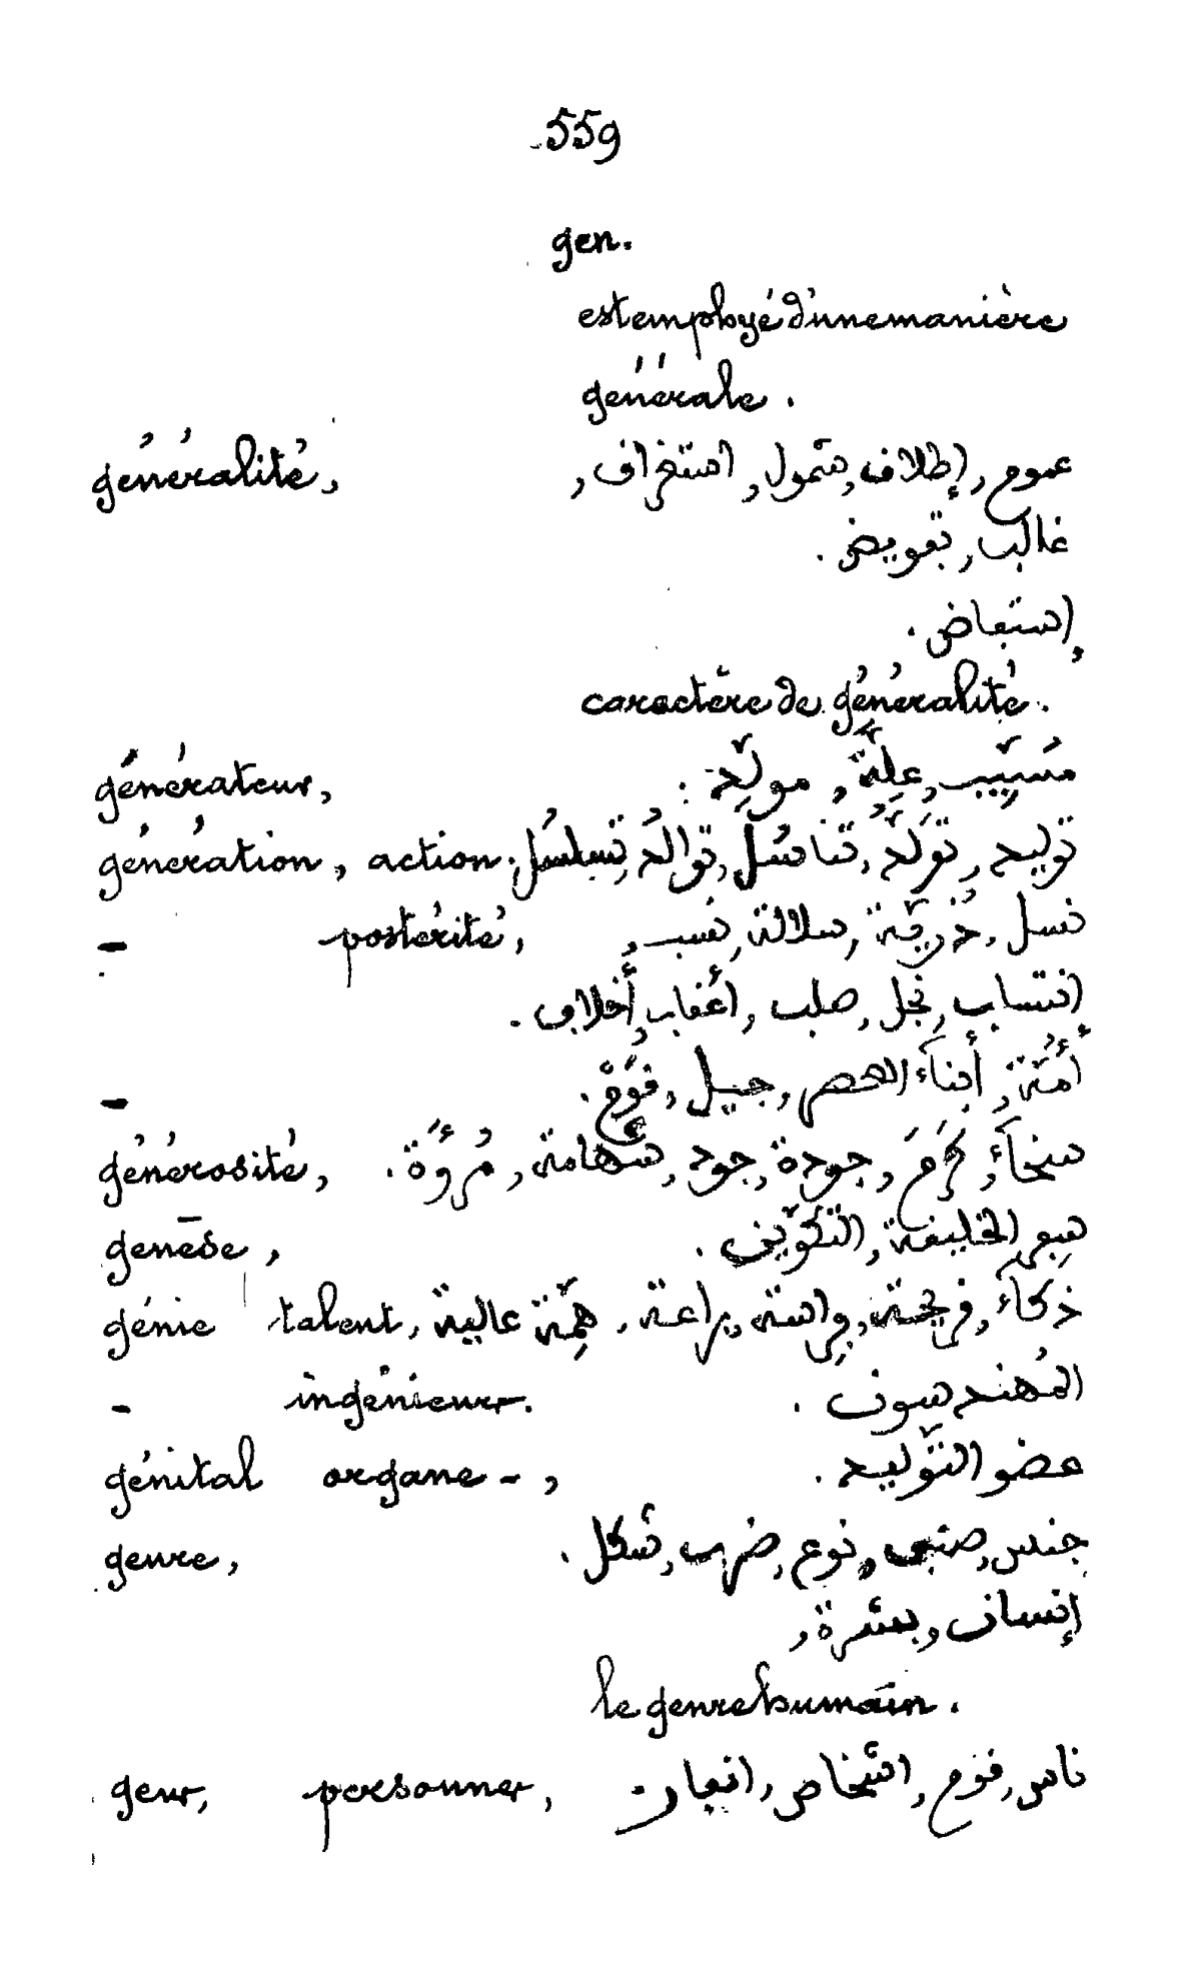 559
gen.
est employé d'une manière
générale.
généralité, عموم, إطلاق, شمول, استغراق,
غالب, تعويض.
إستعاض.
caractère de généralité.
générateur, مُسَبِّب, عِلَّة, مولِّد.
génération, action. توليد, تَوَلُّد, تناسُل, توالُد, تسلسُل,
— postérité, نسل, ذُرِيَّة, سلالة, نسب,
انتساب, نجل, صلب, أعقاب, أخلاف.
— أُمَّة, أبناء العصر, جيل, قَوْم.
générosité, سخاء, كَرَم, جودة, جود, شهامة, مُروَّة.
genèse, الخليقة, التكوين.
génie talent, ذكاء, قريحة, فِراسة, براعة, هِمَّة عالية,
— ingénieur. المُهندسون.
génital organe —, عضو التَّوليد.
genre, جنس, صنف, نوع, ضرب, شكل.
إنسان, بشرة,
le genre humain.
gens, personnes, ناس, قوم, اشخاص, انفار